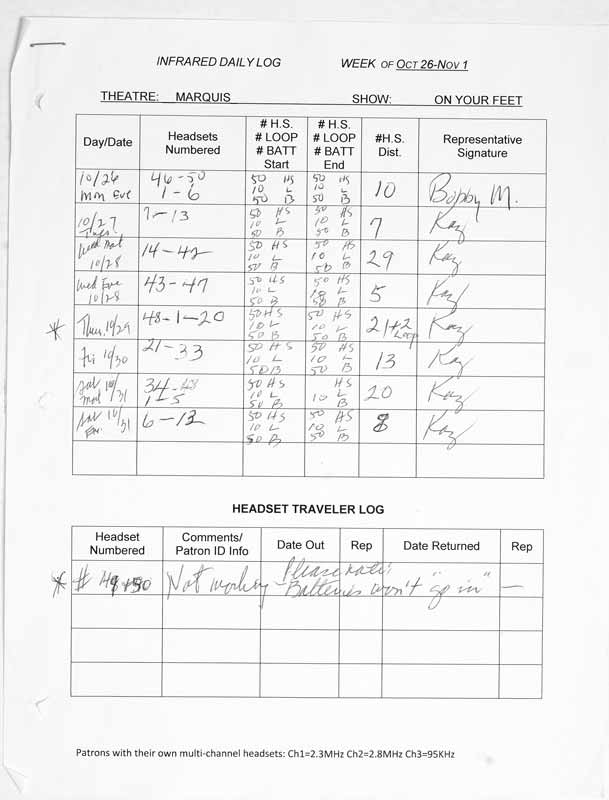 INFRARED DAILY LOG WEEK OF OCT 26-NOV 1
THEATRE: MARQUIS SHOW: ON YOUR FEET
Day/Date Headsets Numbered # H.S. # LOOP # BATT Start # H.S. # LOOP # BATT End #H.S. Dist. Representative Signature
10/26 Mon Eve 46-50 1-6 50 HS 10 L 50 B 50 HS 10 L 50 B 10 Bobby M.
10/27 Tues. 7-13 50 HS 10 L 50 B 50 HS 10 L 50 B 7 Kaz
Wed Mat 10/28 14-42 50 HS 10 L 50 B 50 HS 10 L 50 B 29 Kaz
Wed Eve 10/28 43-47 50 HS 10 L 50 B 50 HS 10 L 50 B 5 Kaz
* Thurs. 10/29 48-1-20 50 HS 10 L 50 B 50 HS 10 L 50 B 21+2 Loop Kaz
Fri 10/30 21-33 50 HS 10 L 50 B 50 HS 10 L 50 B 13 Kaz
Sat 10/31 Mat 34- 1-5 50 HS 10 L 50 B HS 10 L B 20 Kaz
Sat 10/31 Eve. 6-13 50 HS 10 L 50 B 50 HS 10 L 50 B 8 Kaz
HEADSET TRAVELER LOG
Headset Numbered Comments/ Patron ID Info Date Out Rep Date Returned Rep
* # 49+50 Not working - Please note: Batteries won't "go in" —
Patrons with their own multi-channel headsets: Ch1=2.3MHz Ch2=2.8MHz Ch3=95KHz